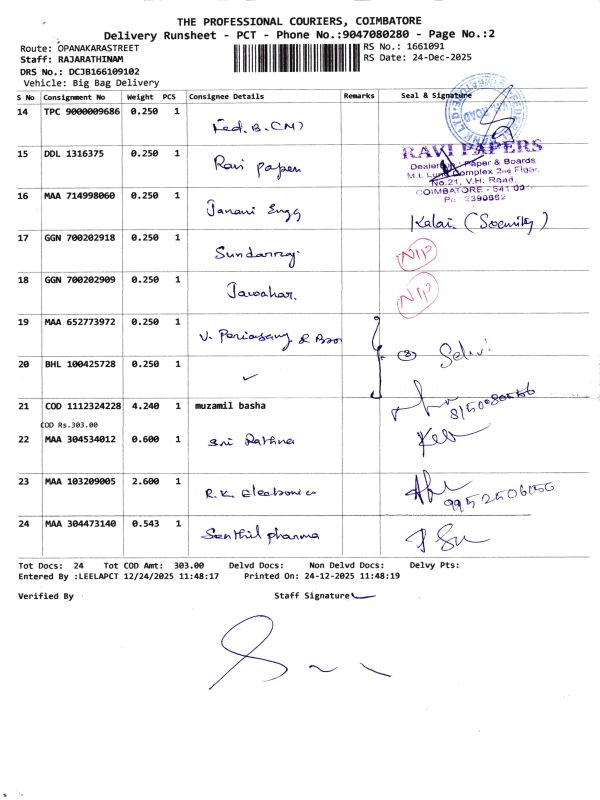 THE PROFESSIONAL COURIERS, COIMBATORE
Delivery Runsheet - PCT - Phone No.:9047080280 - Page No.:2
Route: OPANAKARASTREET
RS No.: 1661091
Staff: RAJARATHINAM
RS Date: 24-Dec-2025
DRS No.: DCJB166109102
Vehicle: Big Bag Delivery
S No Consignment No Weight PCS Consignee Details Remarks Seal & Signature
14 TPC 9000009686 0.250 1 Fed. B. (M)
15 DDL 1316375 0.250 1 Ravi papers
RAVI PAPERS
Dealers Paper & Boards
Complex 2nd Floor,
No.21, V.H. Road,
COIMBATORE - 641 001
2390662
16 MAA 714998060 0.250 1 Janani Engg Kalai (Security)
17 GGN 700202918 0.250 1 Sundarraj N/P
18 GGN 700202909 0.250 1 Jawahar. N/P
19 MAA 652773972 0.250 1 V. Periasamy & Bro
② Selvi
20 BHL 100425728 0.250 1
21 COD 1112324228 4.240 1 muzamil basha
COD Rs.303.00
22 MAA 304534012 0.600 1 Sri Rathna
23 MAA 103209005 2.600 1 R.K. Electronics
9952506056
24 MAA 304473140 0.543 1 Senthil pharma
Tot Docs: 24 Tot COD Amt: 303.00 Delvd Docs: Non Delvd Docs: Delvy Pts:
Entered By :LEELAPCT 12/24/2025 11:48:17 Printed On: 24-12-2025 11:48:19
Verified By Staff Signature